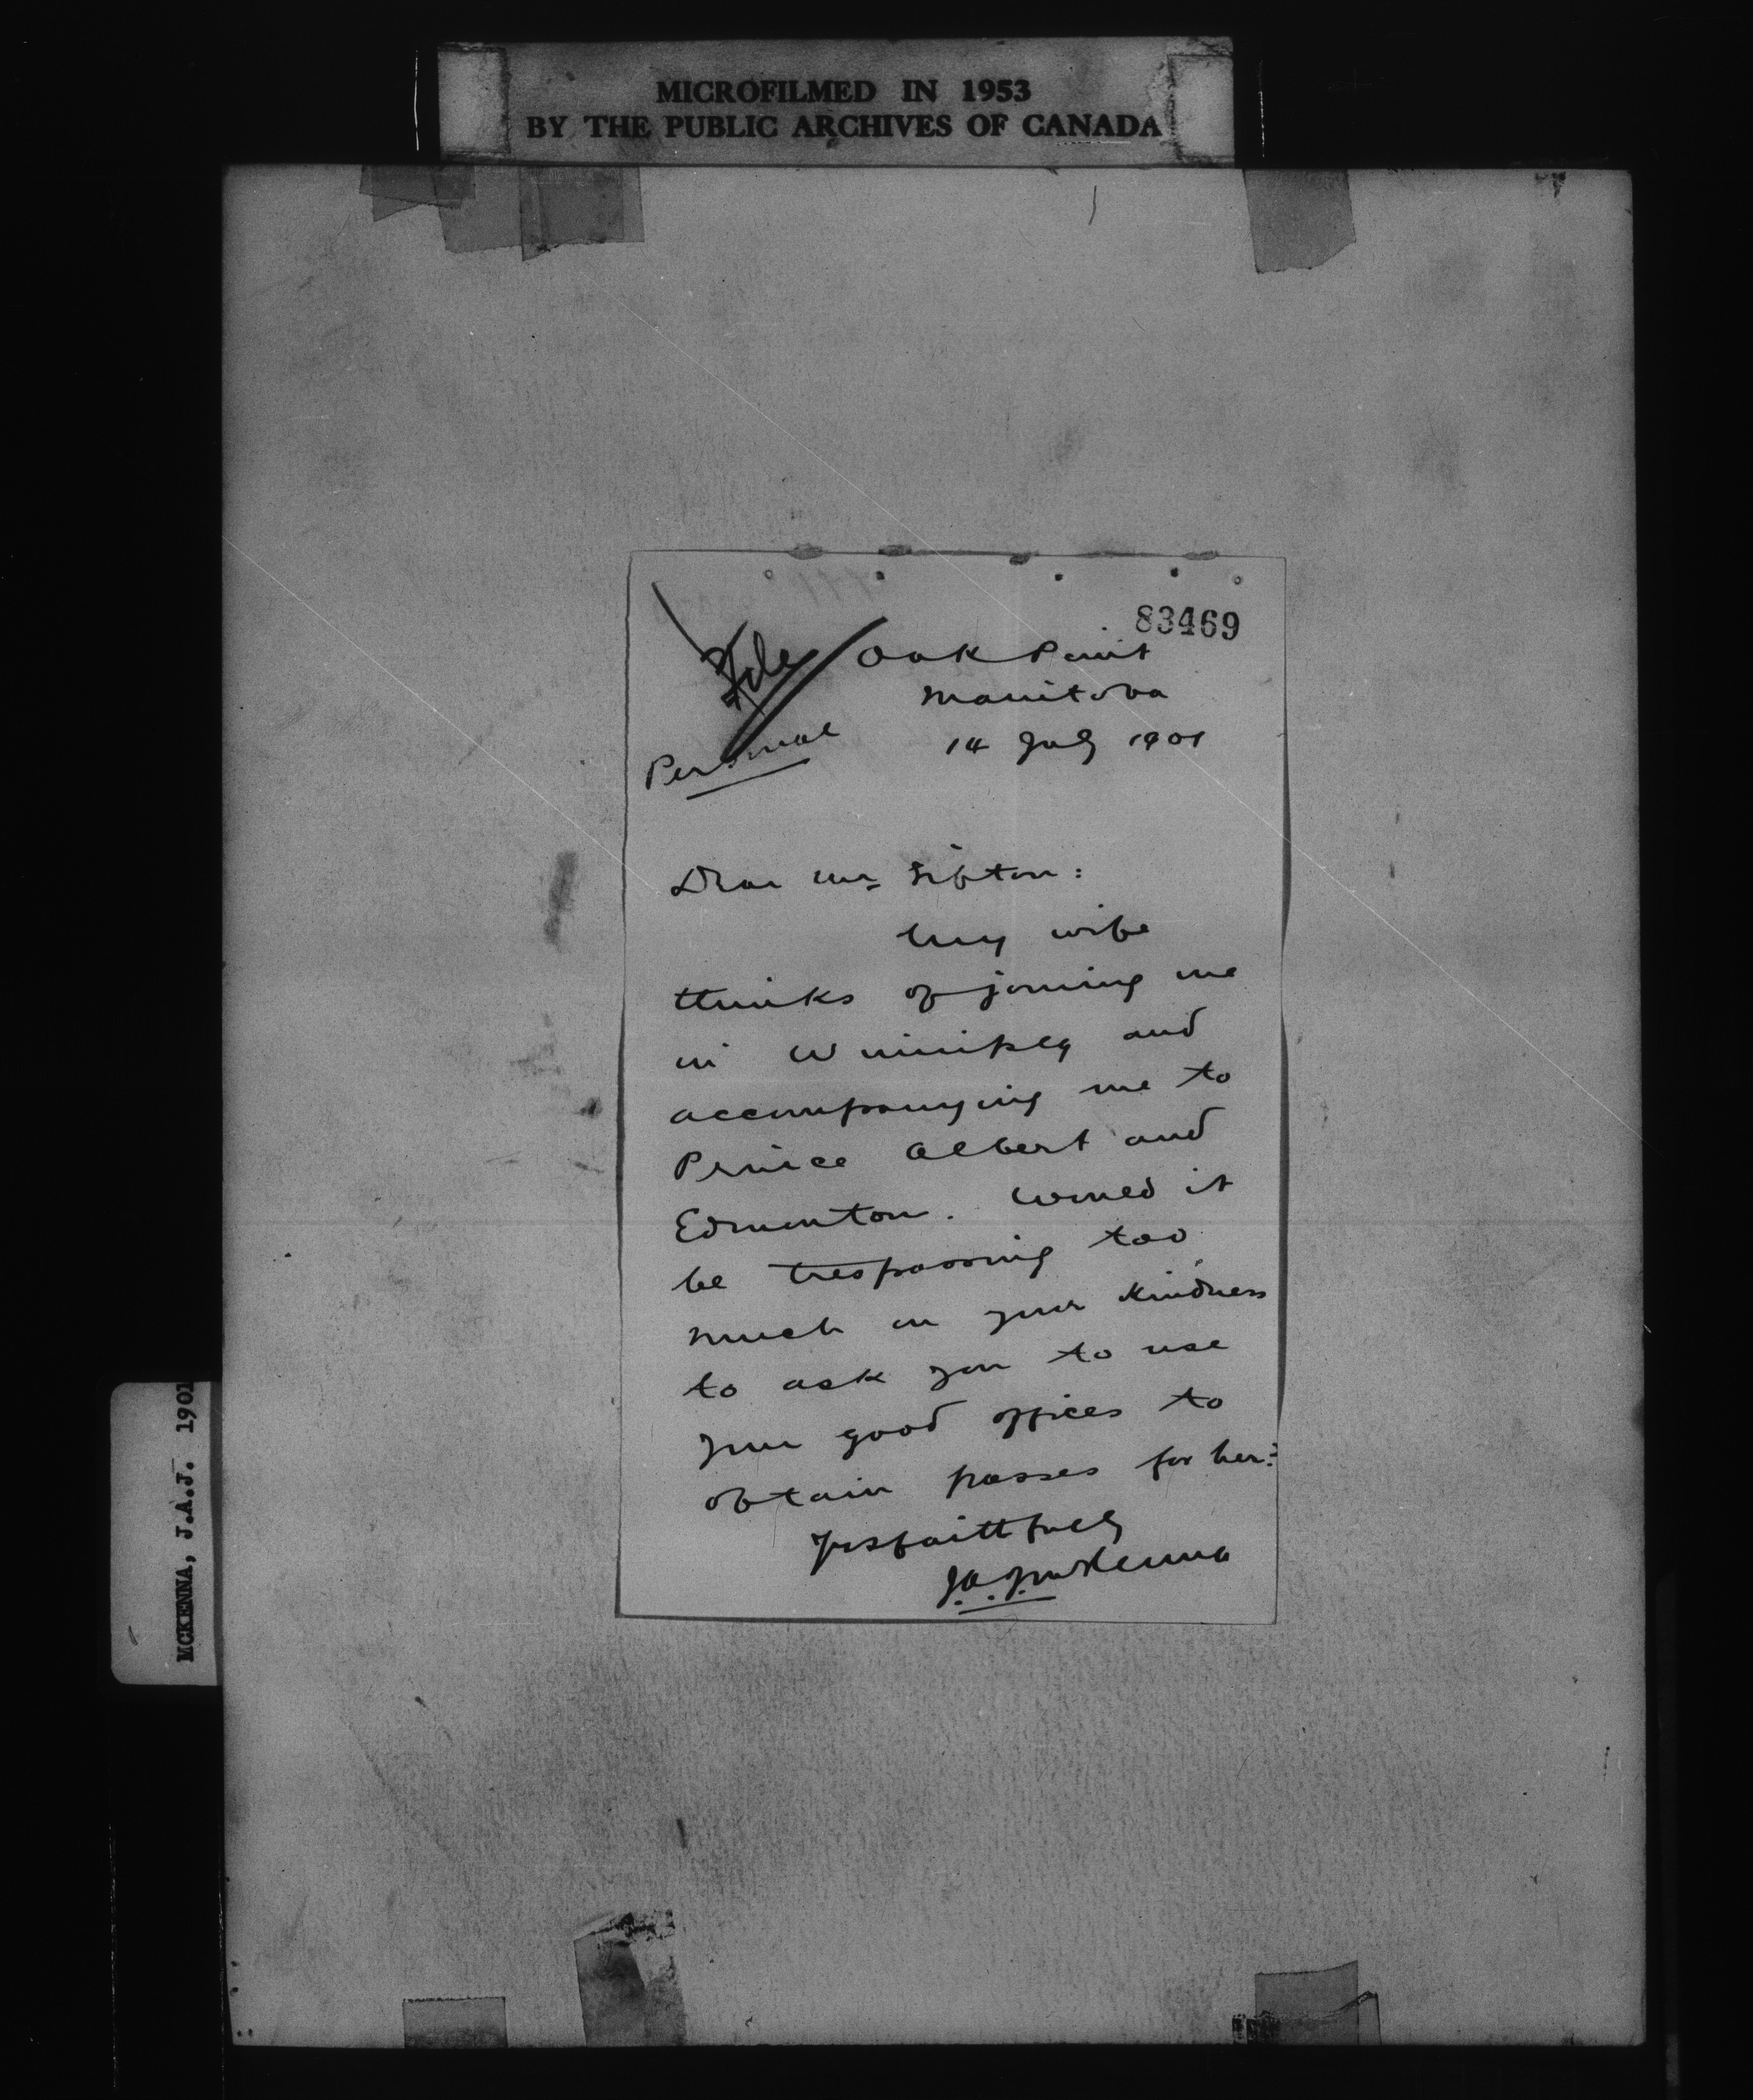 MICROFILMED IN 1953
BY THE PUBLIC ARCHIVES OF CANADA
83469
File
Oak Point
Manitoba
Personal
14 July 1901
Dear Mr Sifton:
My wife
thinks of joining me
in Winnipeg and
accompanying me to
Prince Albert and
Edmonton. Would it
be trespassing too
much on your kindness
to ask you to use
your good offices to
obtain passes for her?
Yrs faithfully
J.A.J. McKenna
MCKENNA, J.A.J. 1901